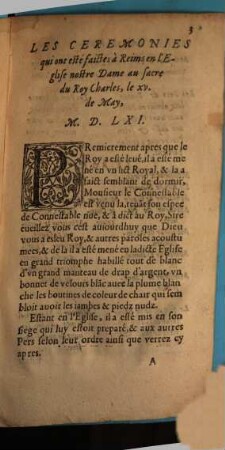 3
LES CEREMONIES
qui ont esté faictes à Reims en l'E-
glise nostre Dame au sacre
du Roy Charles, le xv.
de May,
M. D. LXI.
PRemierement apres que le
Roy a esté leué, il a esté me
né en vn lict Royal, & la a
faict semblant de dormir,
Monsieur le Connestable
est venu là, tenāt son espee
de Connestable nuë, & à dict au Roy, Sire
eueillez vous cest auiourdhuy que Dieu
vous a esleu Roy, & autres paroles acoustu
mees, & de là il a esté mené en ladicte Eglise
en grand triomphe habillé tout de blanc
d'vn grand manteau de drap d'argent, vn
bonnet de velours blāc auec la plume blan
che les bottines de coleur de chair qui sem
bloit auoit les iambes & piedz nudz.
Estant en l'Eglise, il a esté mis en son
siege qui luy estoit preparé, & aux autres
Pers selon leur ordre ainsi que verrez cy
apres.
A